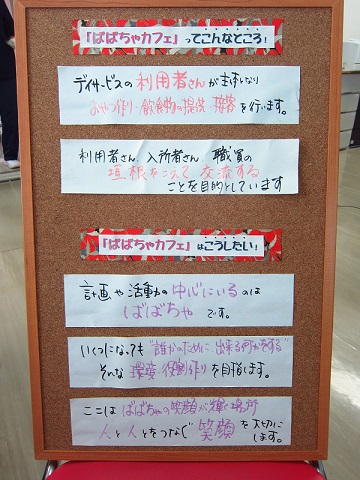 「ばばちゃカフェ」ってこんなところ！
デイサービスの利用者さんが主体となり
おやつ作り・飲食物の提供・接客を行います。
利用者さん、入所者さん、職員の
垣根をこえて交流する
ことを目的としています
「ばばちゃカフェ」はこうしたい！
計画や活動の中心にいるのは
ばばちゃです。
いくつになっても"誰かのために出来る何かをする"
そんな環境・役割作りを目指します。
ここはばばちゃの笑顔が輝く場所
人と人とをつなぐ笑顔を大切に
します。